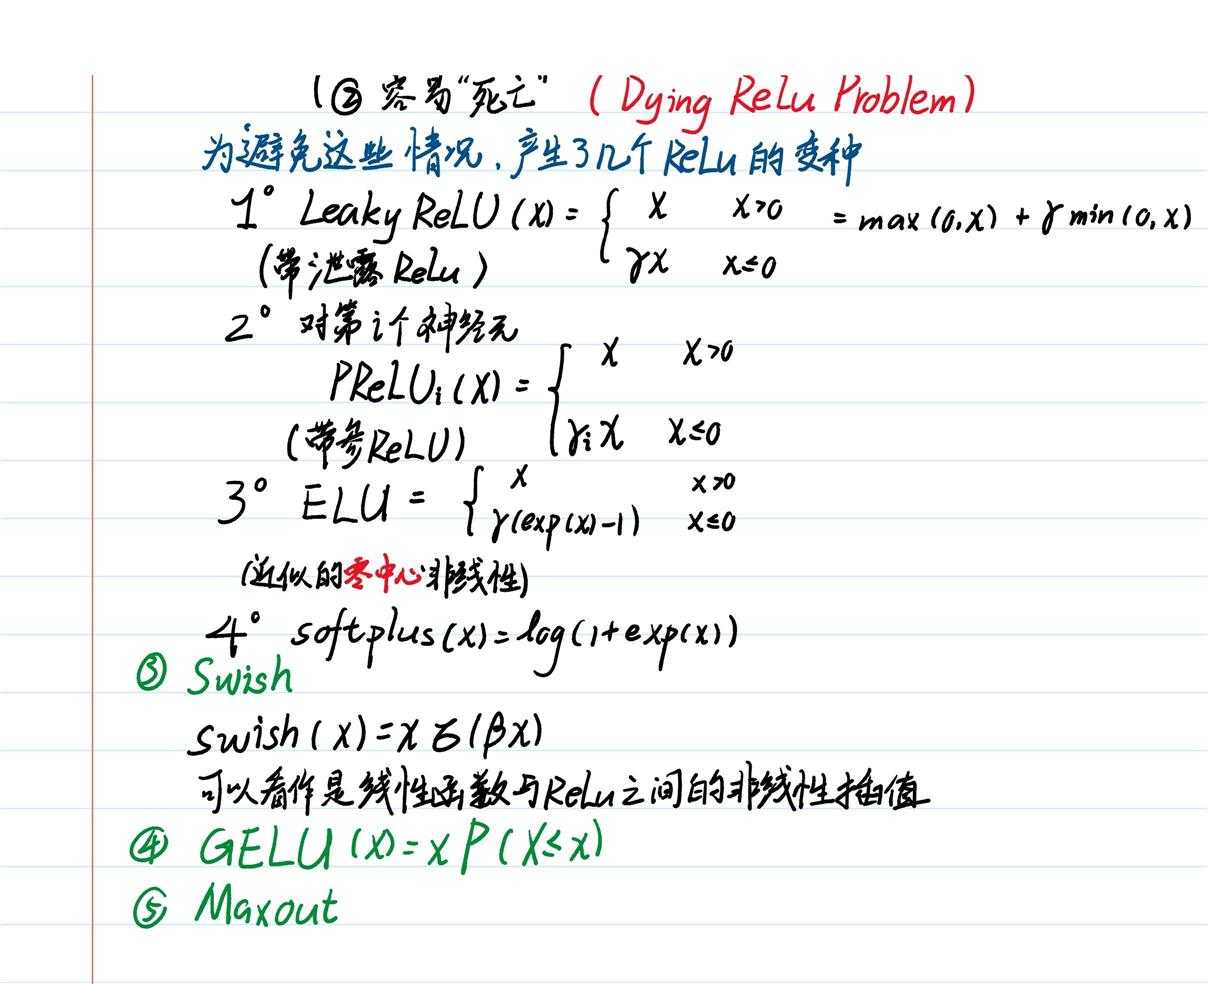 (② 容易“死亡” (Dying ReLu Problem)
为避免这些情况,产生了几个ReLu的变种
1° Leaky ReLU(x) = { x x>0 = max(0,x) + γ min(0,x)
γx x≤0
(带泄露Relu)
2° 对第i个神经元
PReLUi(x) = { x x>0
γi x x≤0
(带参ReLU)
3° ELU = { x x>0
γ(exp(x)-1) x≤0
(近似的零中心非线性)
4° softplus(x)=log(1+exp(x))
③ Swish
swish(x)=xσ(βx)
可以看作是线性函数与ReLu之间的非线性插值
④ GELU(x)=xP(X≤x)
⑤ Maxout